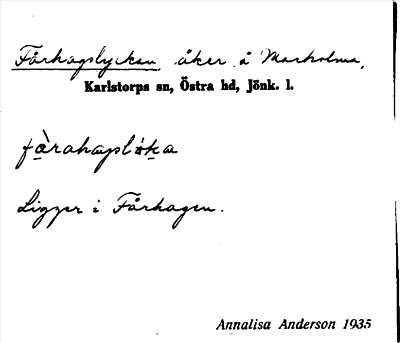 Fårhagslyckan åker å Marholma,
Karlstorps sn, Östra hd, Jönk. l.
fàrahapl
Ligger i Fårhagen.
Annalisa Anderson 1935